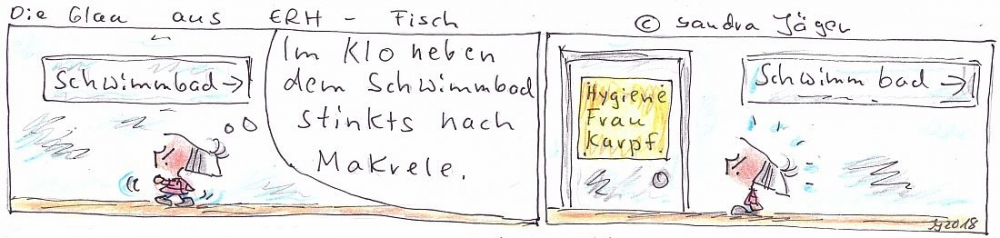 Die Glaa aus ERH - Fisch
© Sandra Jäger
Schwimmbad →
Im Klo neben
dem Schwimmbad
stinkts nach
Makrele.
Hygiene
Frau
Karpf.
Schwimmbad →
Jä2018